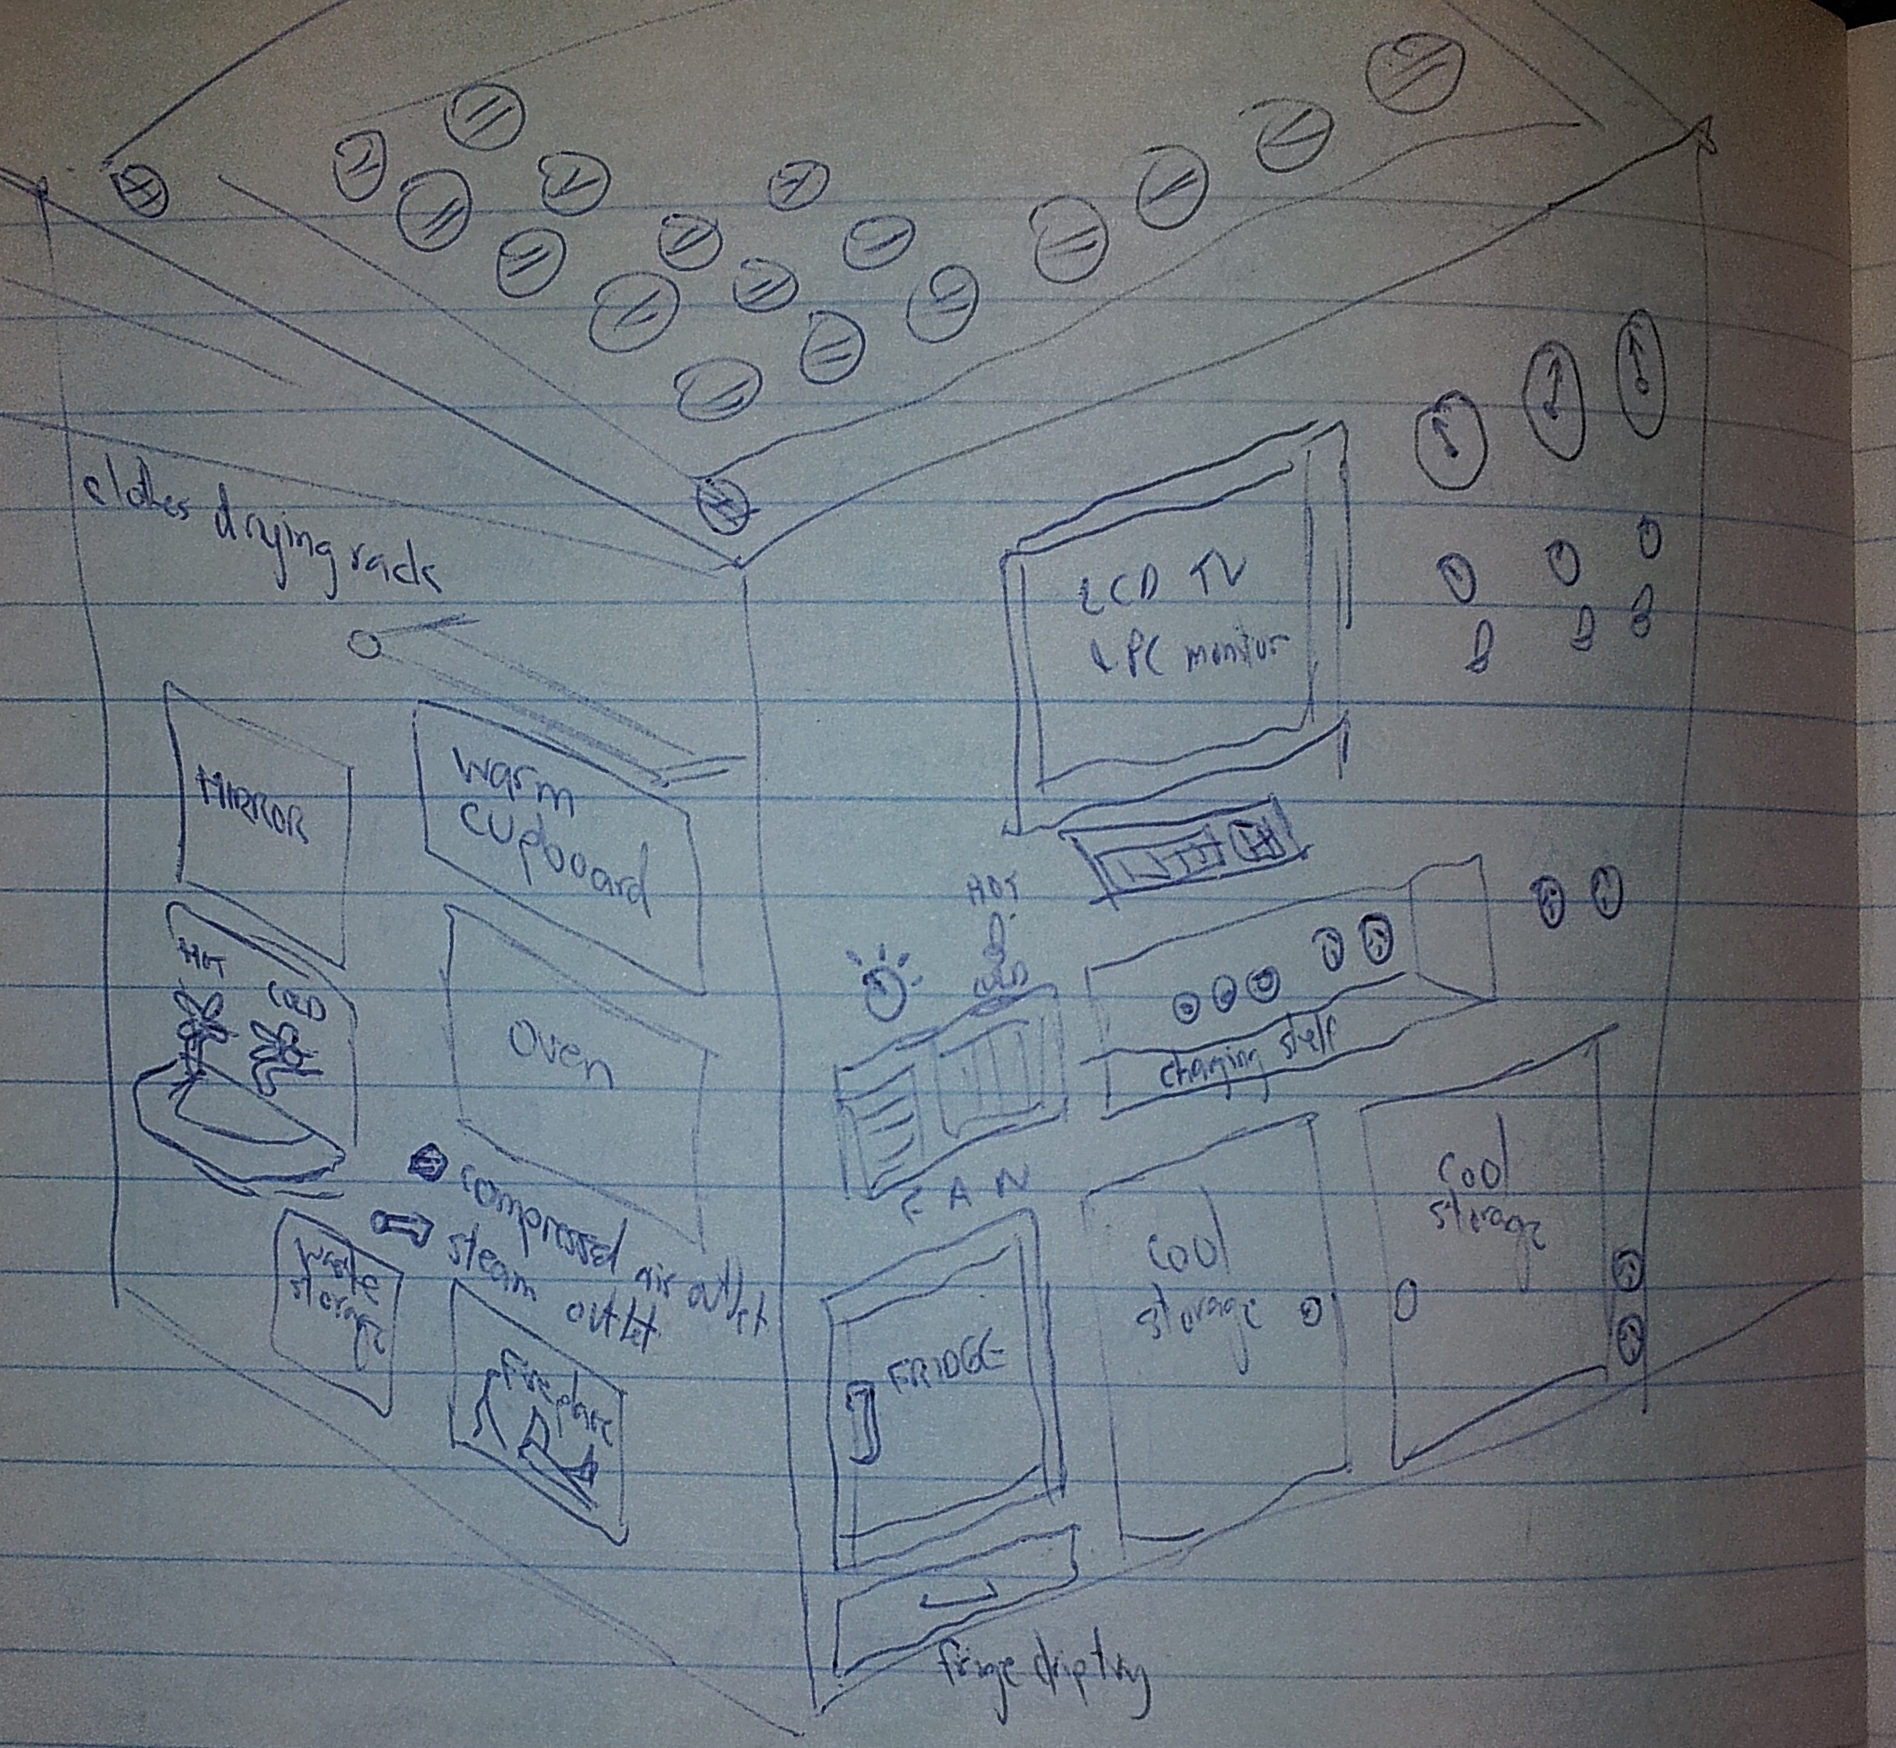 clothes drying rack
MIRROR
warm
cupbooard
HOT
COLD
Oven
compressed air outlet
steam outlet
waste
storage
fireplace
LCD TV
& PC monitor
HOT
COLD
charging shelf
FAN
FRIDGE
cool
storage
cool
storage
frige driptray